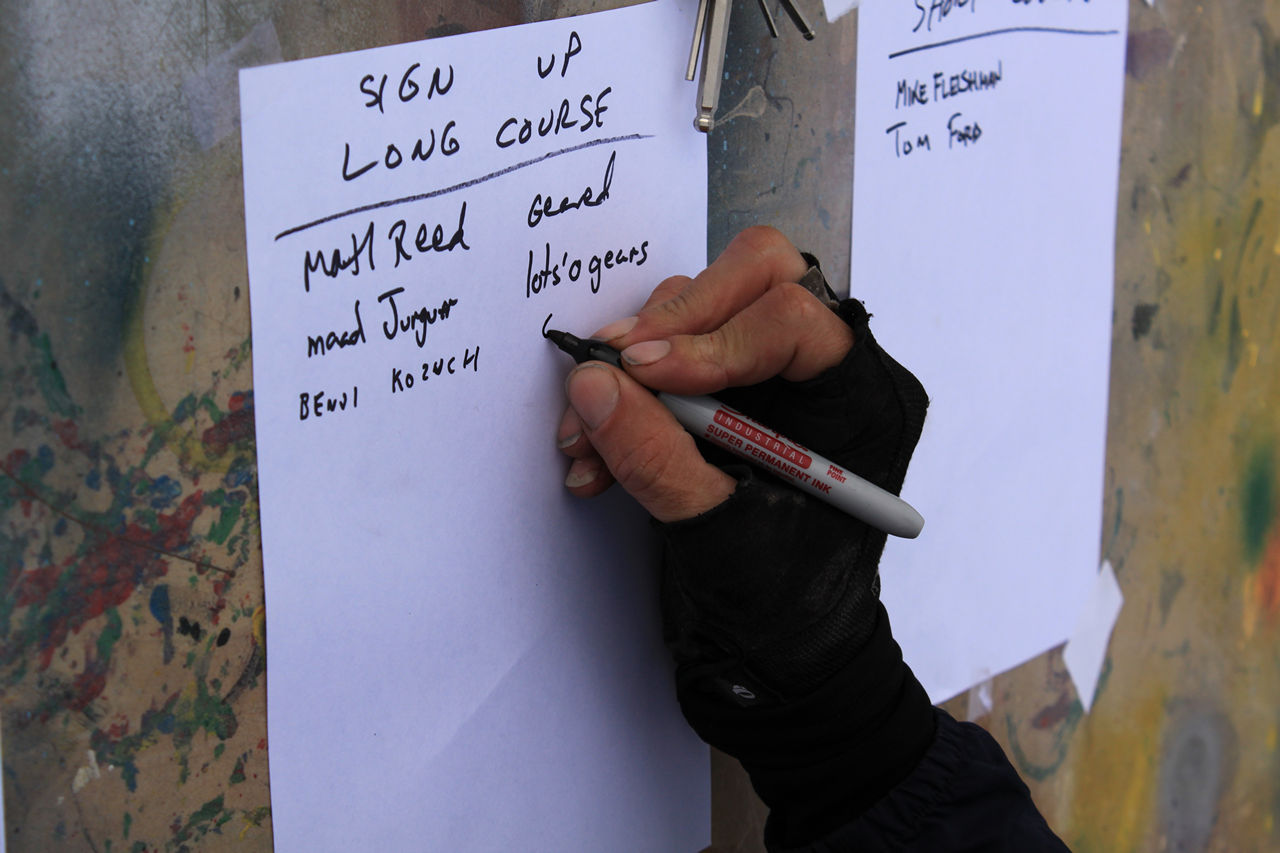 SIGN UP
LONG COURSE
Matt Reed Geared
lots'o gears
BENJI KOZUCH
MIKE FLEISHMAN
TOM FORD
INDUSTRIAL
SUPER PERMANENT INK
FINE POINT